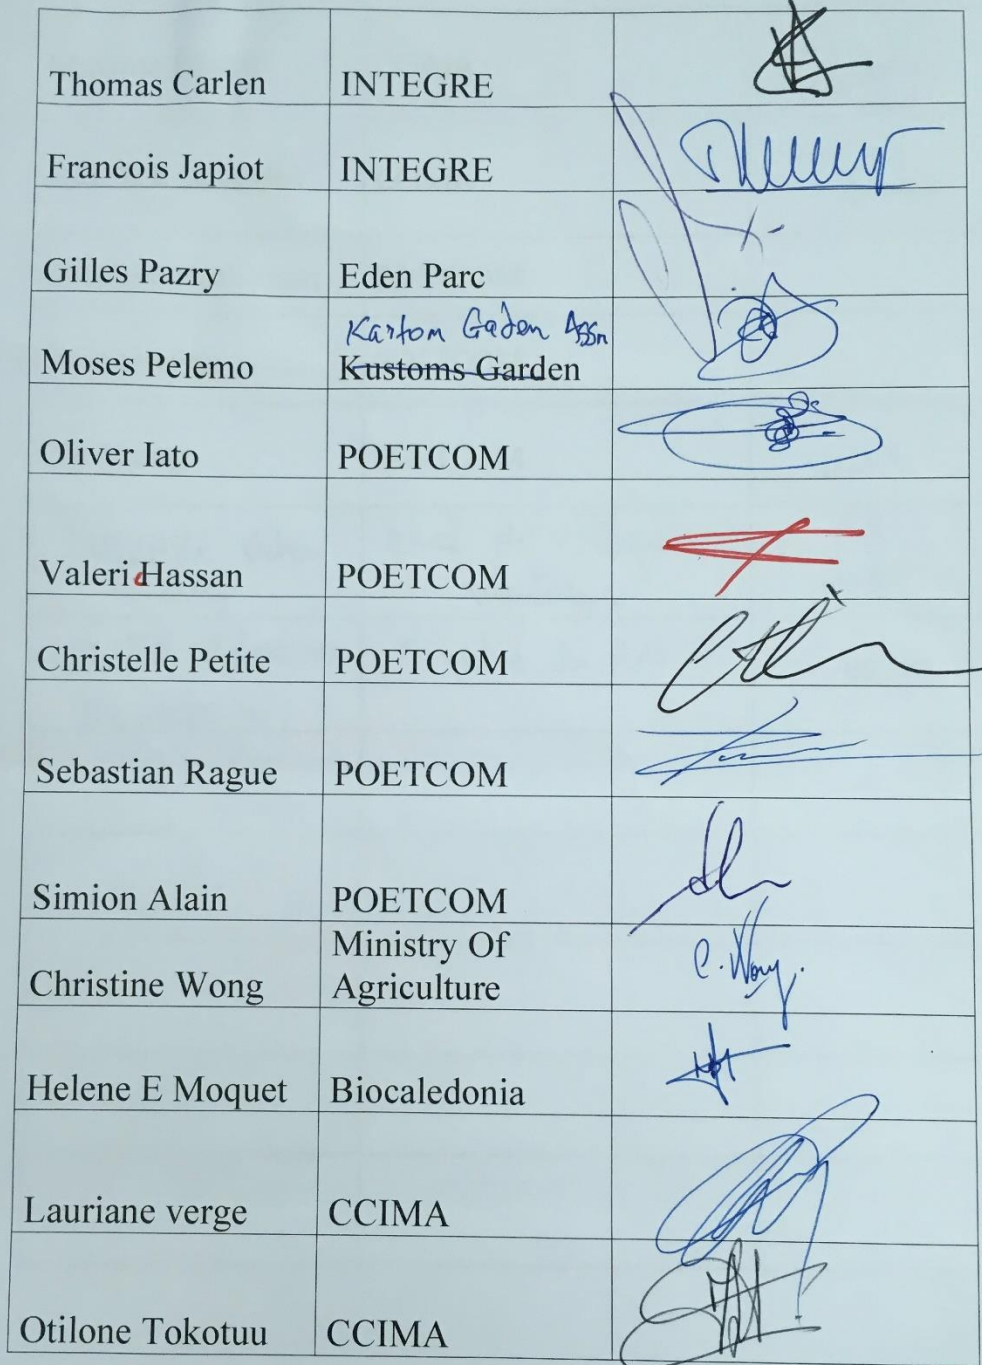 Thomas Carlen INTEGRE
Francois Japiot INTEGRE
Gilles Pazry Eden Parc
Kastom Gaden Assn
Moses Pelemo Kustoms Garden
Oliver Iato POETCOM
Valerie Hassan POETCOM
Christelle Petite POETCOM
Sebastian Rague POETCOM
Simion Alain POETCOM
Ministry Of
Christine Wong Agriculture C. Wong.
Helene E Moquet Biocaledonia
Lauriane verge CCIMA
Otilone Tokotuu CCIMA